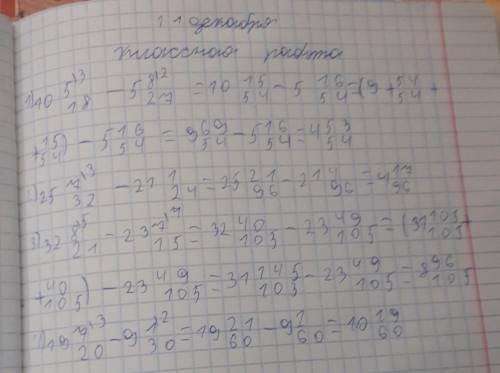 11 декабря
классная работа
1) 10 5/18 \3 - 5 8/27 \2 = 10 15/54 - 5 16/54 = (9 + 54/54 +
+ 15/54) - 5 16/54 = 9 69/54 - 5 16/54 = 4 53/54
2) 25 7/32 \3 - 21 1/24 = 25 21/96 - 21 4/96 = 4 17/96
3) 32 8/21 \5 - 23 7/15 \7 = 32 40/105 - 23 49/105 = (31 105/105 +
+ 40/105) - 23 49/105 = 31 145/105 - 23 49/105 = 8 96/105
4) 19 7/20 \3 - 9 1/30 \2 = 19 21/60 - 9 2/60 = 10 19/60